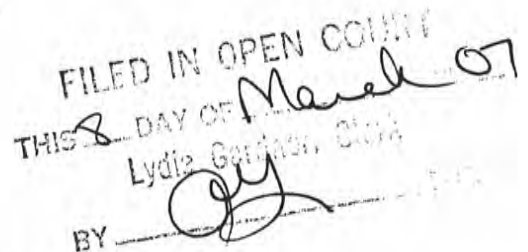 FILED IN OPEN COURT
THIS 8 DAY OF March 07
Lydia Gardner, Clerk
BY